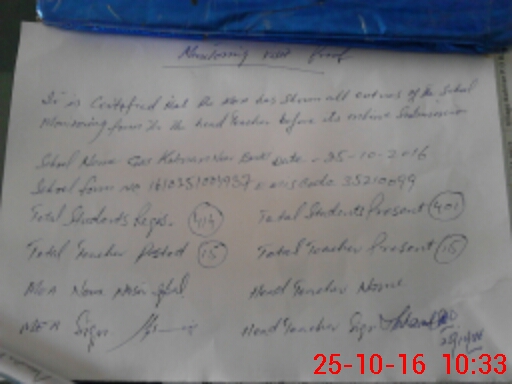 Monitoring visit proof
It is Certified that the MEA has shown all entries of the School
Monitoring form to the head Teacher before its online Submission
School Name Date. 25-10-2016
School form no Emis Code. 35210099
Total Students Regs. 414 Total Students Present 401
Total Teacher Posted 15 Total Teacher Present 15
MEA Name Head Teacher Name
MEA Sign Head Teacher Sign
25-10-16 10:33